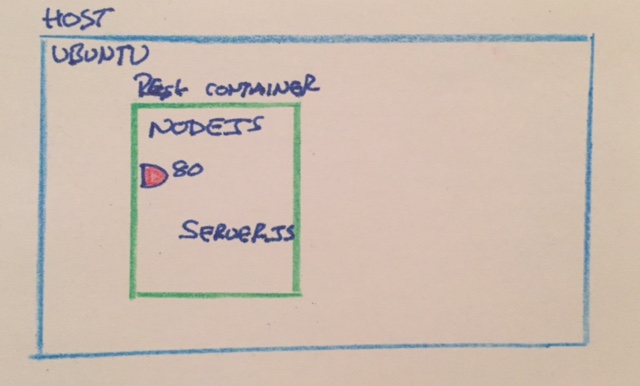 HOST
UBUNTU
REST CONTAINER
NODEJS
80
SERVER.JS